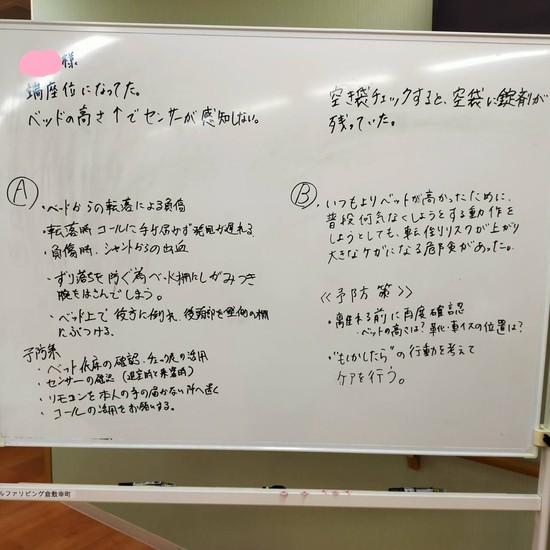 様
端座位になってた。
ベッドの高さ↑でセンサーが感知しない。
空き袋チェックすると、空袋に錠剤が
残っていた。
Ⓐ
・ベッドからの転落による負傷
・転落時コールに手が届かず発見が遅れる
・負傷時、シャントからの出血
・ずり落ちを防ぐ為ベッド柵にしがみつき
腕をはさんでしまう。
・ベッド上で後方に倒れ、後頭部を壁側の柵
にぶつける。
予防策
・ベッド低床の確認、チェック表の活用
・センサーの確認(退室時と来室時)
・リモコンを本人の手の届かない所へ置く
・コールの活用をお願いする。
Ⓑ
・いつもよりベットが高かったために、
普段何気なくしようとする動作を
しようとしても、転倒リスクが上がり
大きなケガになる危険があった。
《予防策》
・離れる前に再度確認
ベットの高さは?靴・車イスの位置は?
・"もしかしたら"の行動を考えて
ケアを行う。
ルファリビング倉敷幸町